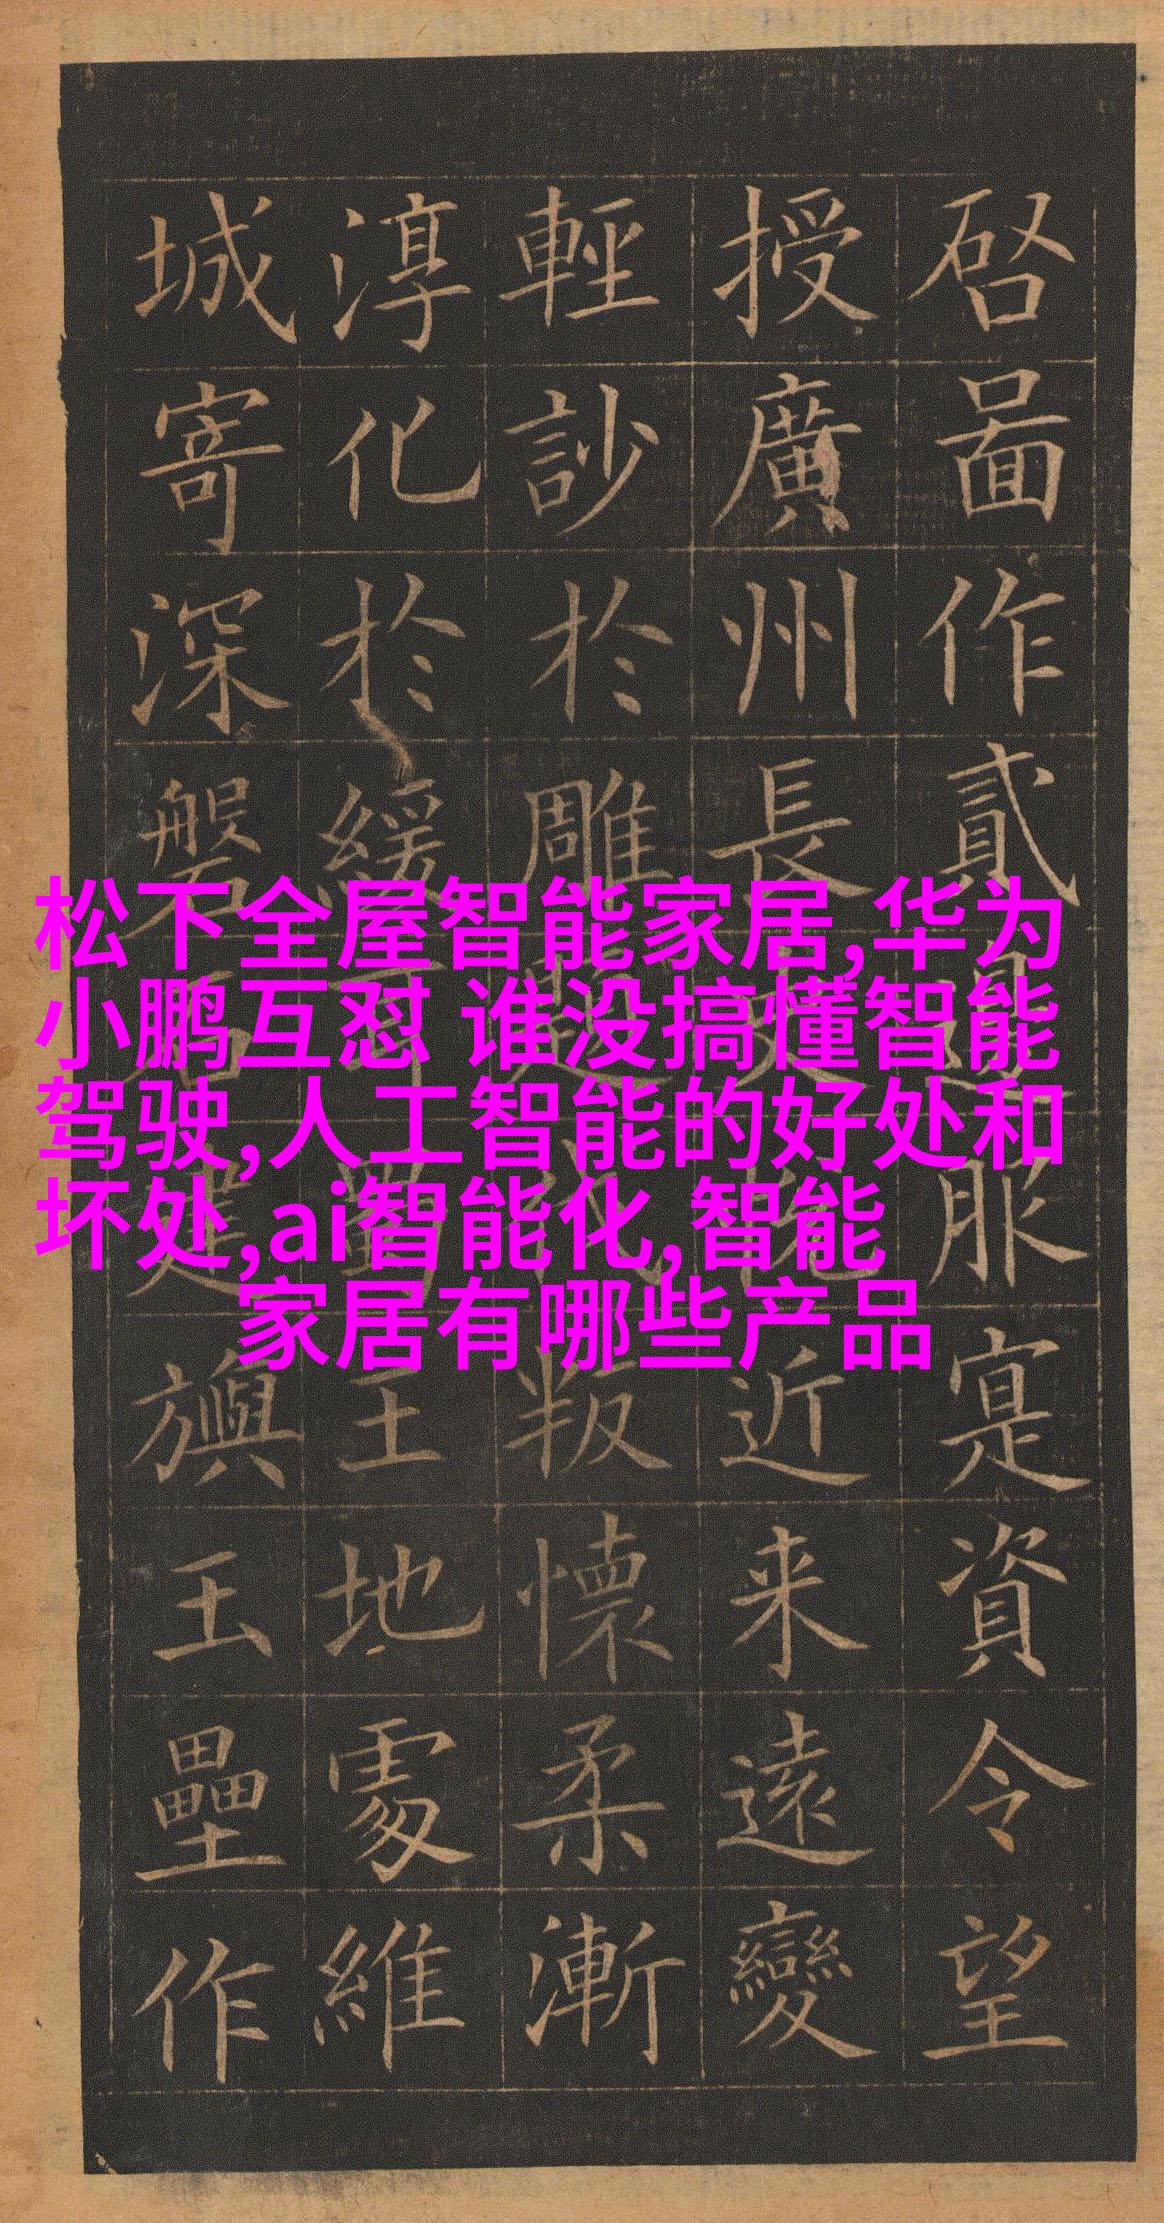 松下全屋智能家居,华为
小鹏互怼 谁没搞懂智能
驾驶,人工智能的好处和
坏处,ai智能化,智能
家居有哪些产品
啚作貳服寔資令望
授廣州長近来遠變
輕訬於雕叛懷柔漸
淳化於緩王地處維
城寄深磐建旟玉壘作